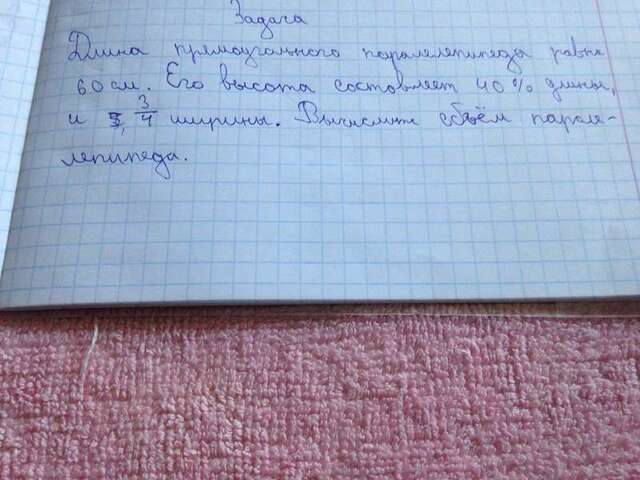 Задача
Длина прямоугольного паралелепипеда равна
60 см. Его высота состовляет 40% длины,
и 3/4 ширины. Вычислите объём парале-
лепипеда.